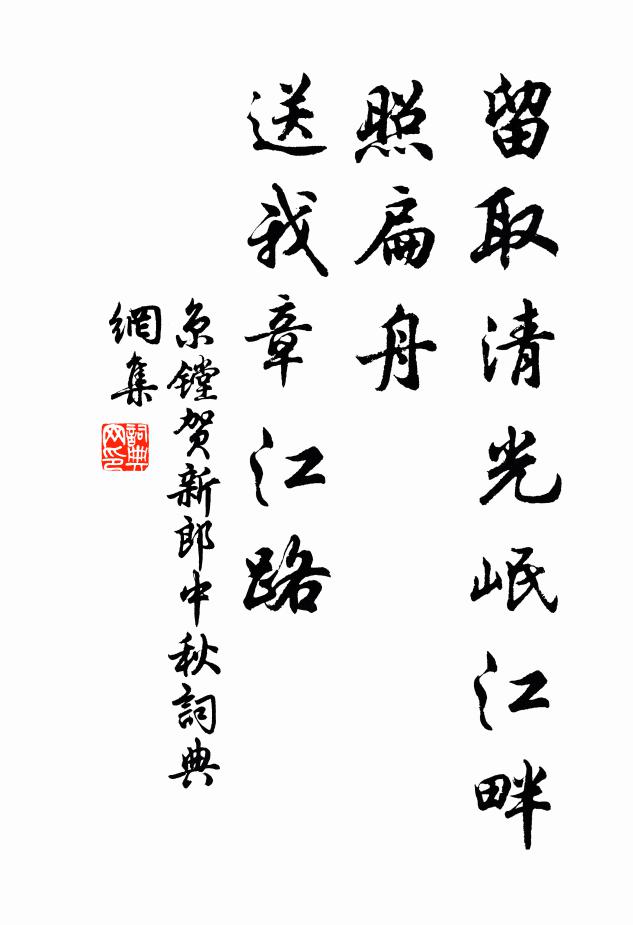 留取清光岷江畔
照扁舟
送我章江路
京镗贺新郎中秋詞典
網集
詞典
网印